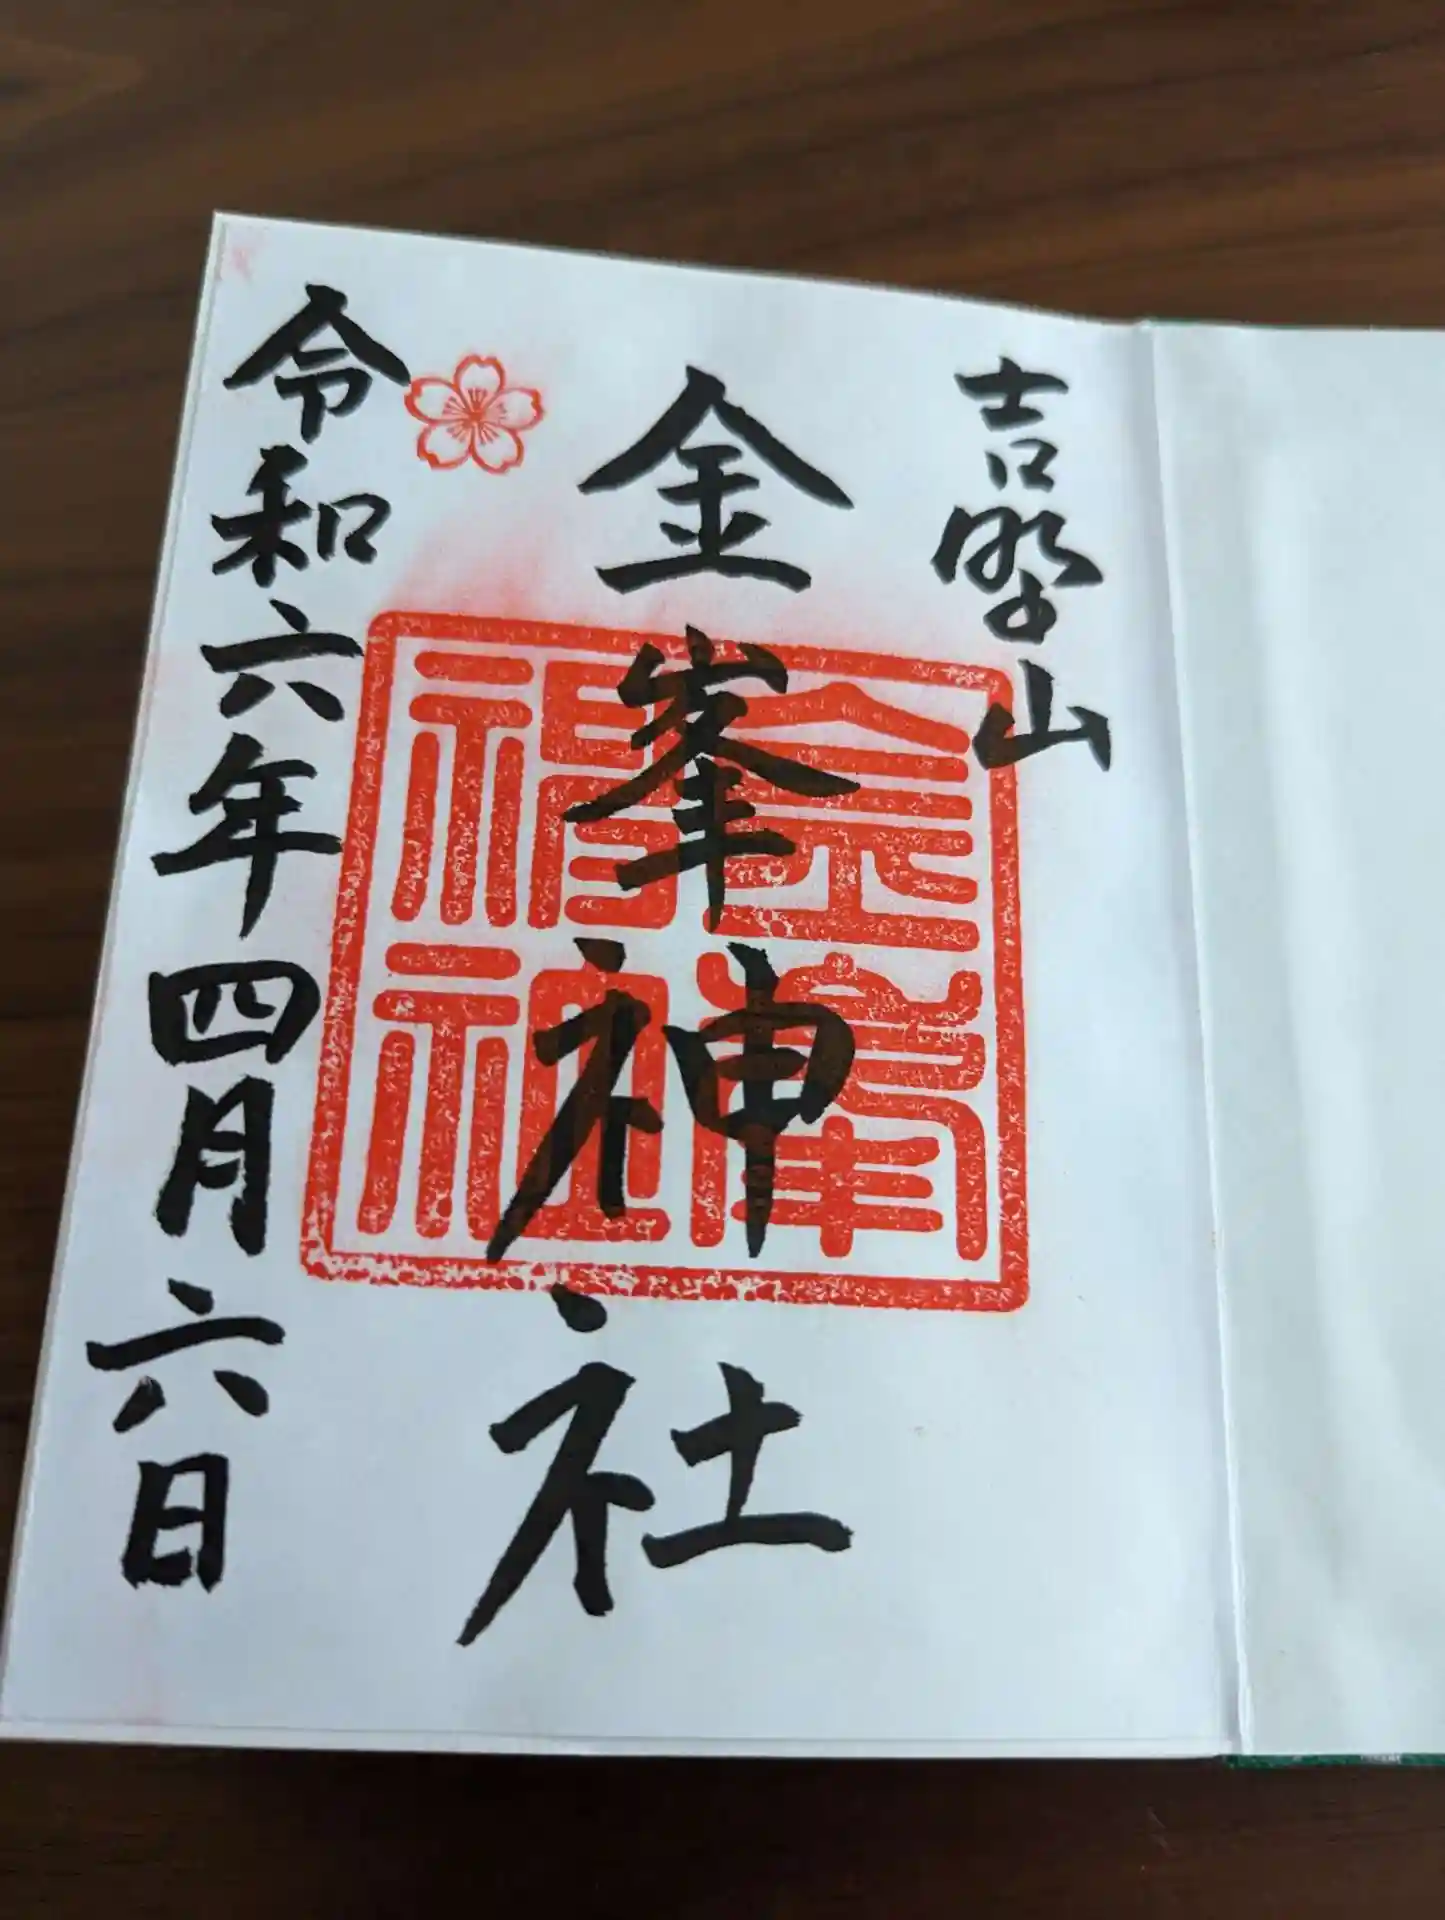 吉野山
金峯神社
金峯神社
令和六年四月六日